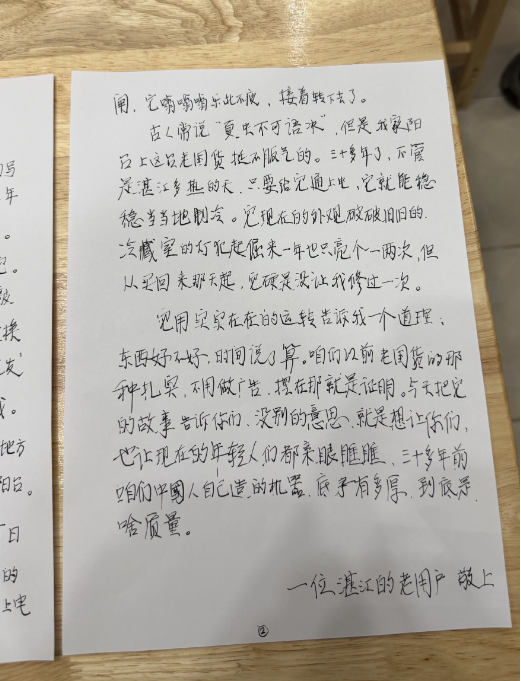 闹，它嗡嗡嗡乐此不疲，接着转下去了。
古人常说“夏虫不可语冰”，但是我家阳
台上这台老国货挺不服气的。三十多年了，不管
是湛江多热的天，只要给它通上电，它就能稳
稳当当地制冷。它现在的外观破破旧旧的，
冷藏室的灯犯起倔来一年也只亮个一两次，但
从买回来那天起，它硬是没让我修过一次。
它用实实在在的运转告诉我一个道理：
东西好不好，时间说了算。咱们以前老国货的那
种扎实，不用做广告，摆在那就是证明。今天把它
的故事告诉你们，没别的意思，就是想让你们，
也让现在的年轻人们都来眼瞧瞧，三十多年前
咱们中國人自己造的机器，底子有多厚，到底是
啥质量。
一位湛江的老用户 敬上
②
写
年
。
挨
发
我。
地方
阳台。
日
的
上电